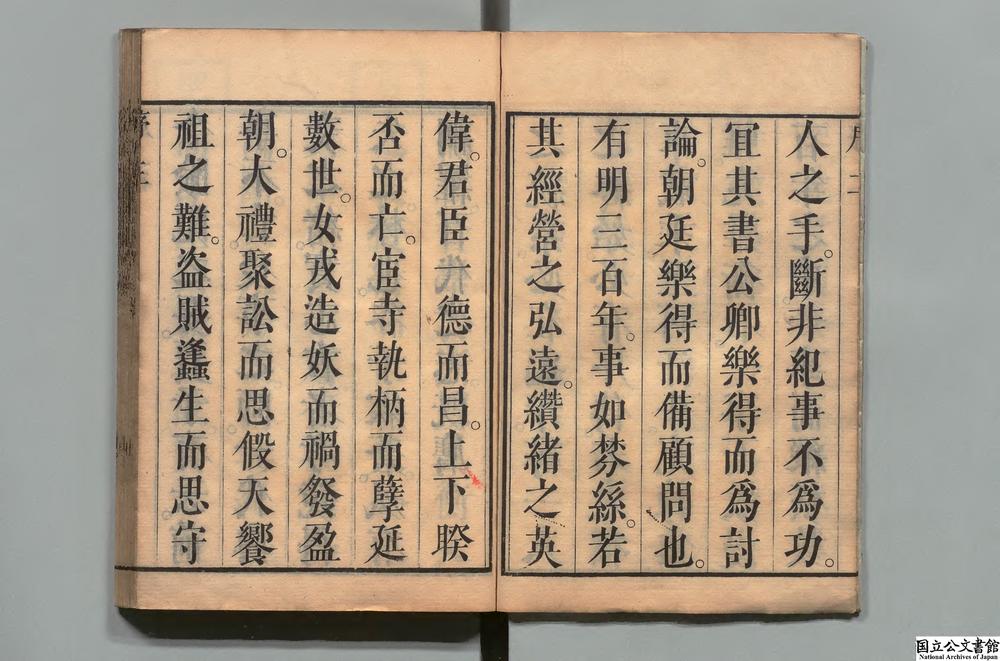 人之手。斷非紀事不為功。
宜其書公卿樂得而為討
論。朝廷樂得而備顧問也。
有明三百年。事如棼絲。若
其經營之弘遠。纘緒之英
偉。君臣一德而昌。上下睽
否而亡。宦寺執柄而孽延
數世。女戎造妖而禍發盈
朝。大禮聚訟而思假天饗
祖之難。盗賊蠭生而思守
国立公文書館
National Archives of Japan